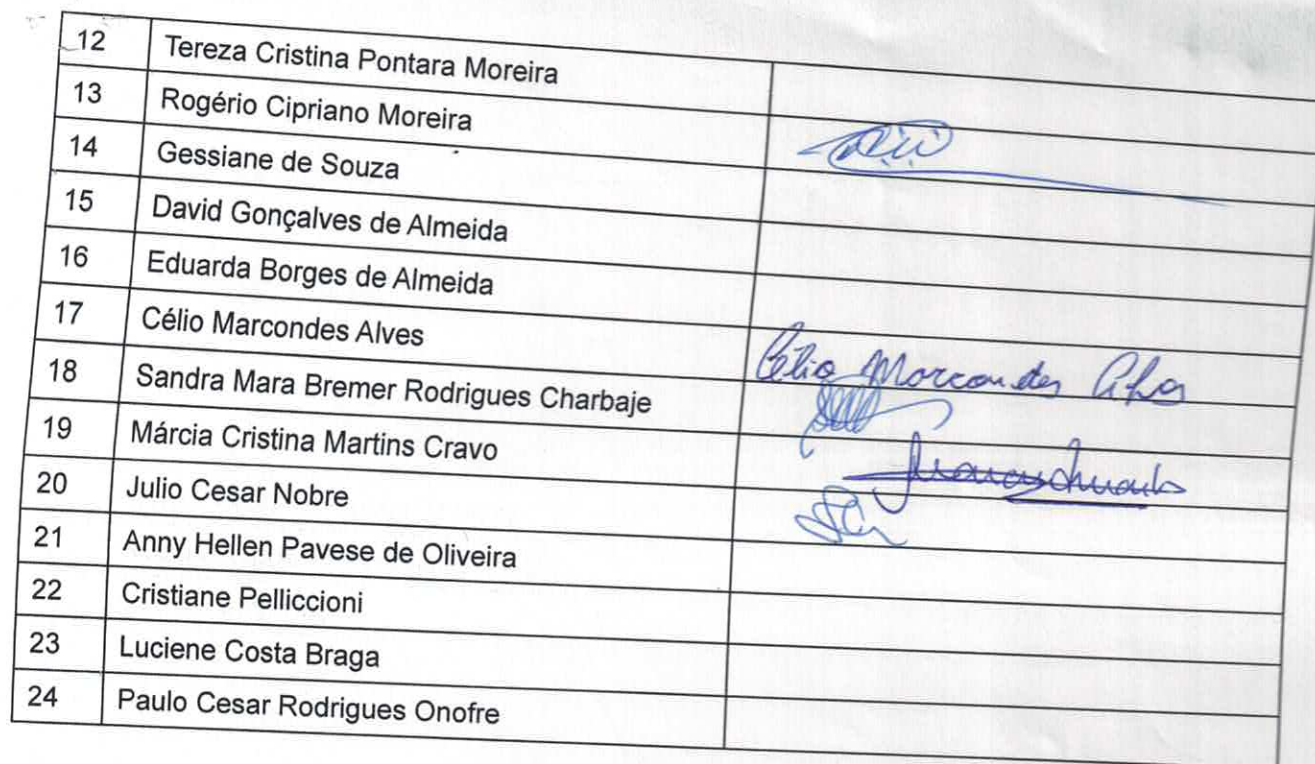 12 Tereza Cristina Pontara Moreira
13 Rogério Cipriano Moreira
14 Gessiane de Souza
15 David Gonçalves de Almeida
16 Eduarda Borges de Almeida
17 Célio Marcondes Alves Célio Marcondes
18 Sandra Mara Bremer Rodrigues Charbaje
19 Márcia Cristina Martins Cravo
20 Julio Cesar Nobre
21 Anny Hellen Pavese de Oliveira
22 Cristiane Pelliccioni
23 Luciene Costa Braga
24 Paulo Cesar Rodrigues Onofre